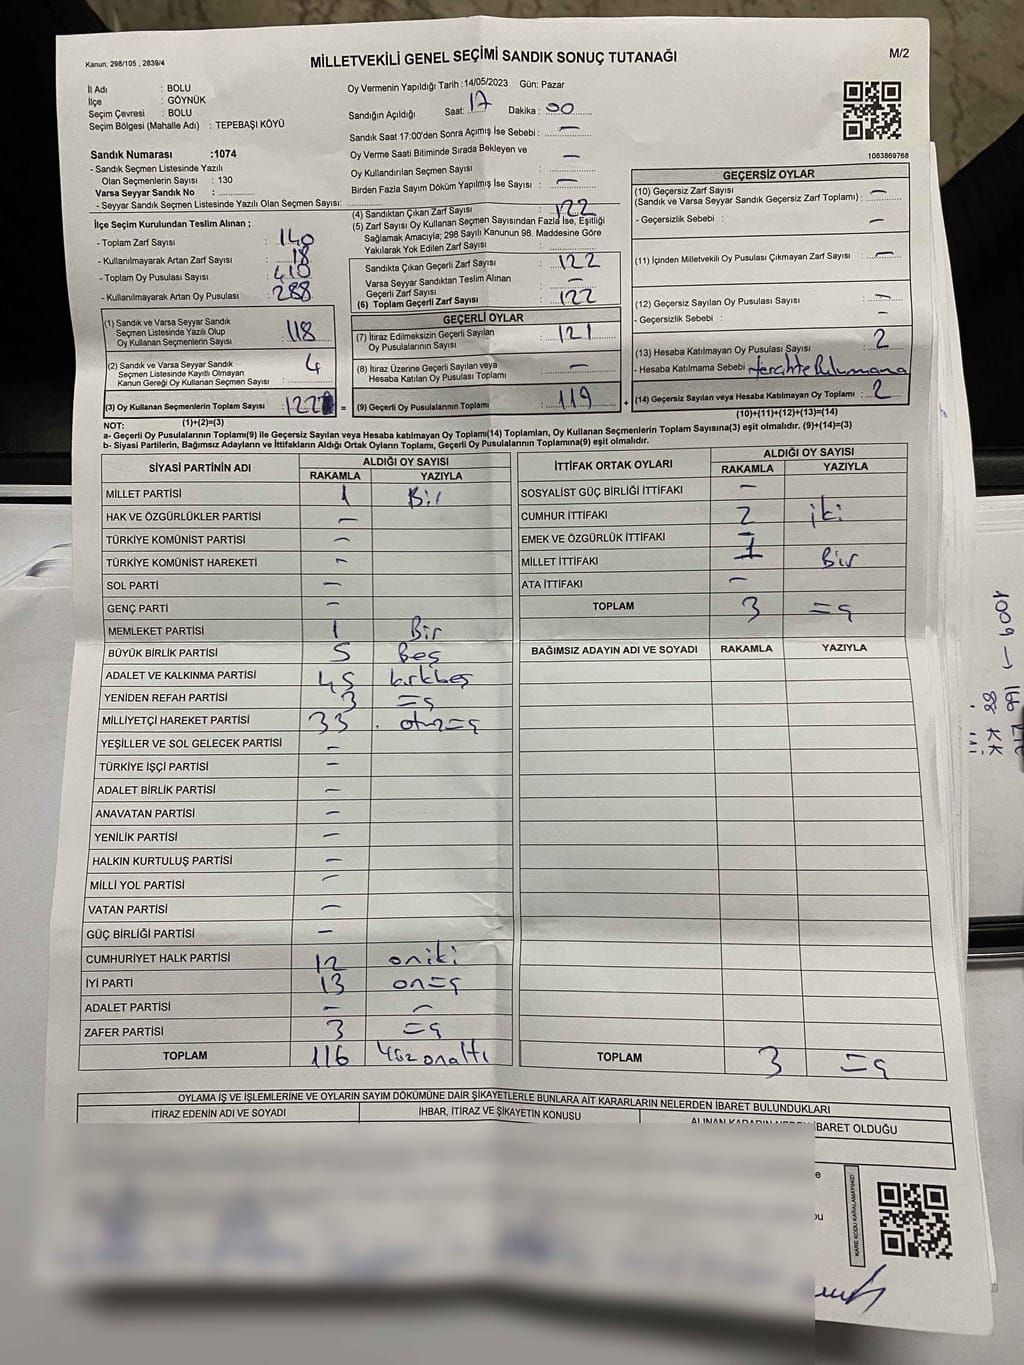 Kanun, 298/105 , 2839/4
MİLLETVEKİLİ GENEL SEÇİMİ SANDIK SONUÇ TUTANAĞI
M/2
İl Adı : BOLU
İlçe : GÖYNÜK
Seçim Çevresi : BOLU
Seçim Bölgesi (Mahalle Adı) : TEPEBAŞI KÖYÜ
Sandık Numarası :1074
- Sandık Seçmen Listesinde Yazılı
Olan Seçmenlerin Sayısı : 130
Varsa Seyyar Sandık No :
- Seyyar Sandık Seçmen Listesinde Yazılı Olan Seçmen Sayısı:
İlçe Seçim Kurulundan Teslim Alınan ;
- Toplam Zarf Sayısı : 140
- Kullanılmayarak Artan Zarf Sayısı : 18
- Toplam Oy Pusulası Sayısı : 410
- Kullanılmayarak Artan Oy Pusulası : 288
(1) Sandık ve Varsa Seyyar Sandık
Seçmen Listesinde Yazılı Olup
Oy Kullanan Seçmenlerin Sayısı : 118
(2) Sandık ve Varsa Seyyar Sandık
Seçmen Listesinde Kayıtlı Olmayan
Kanun Gereği Oy Kullanan Seçmen Sayısı : 4
(3) Oy Kullanan Seçmenlerin Toplam Sayısı : 122
(1)+(2)=(3)
Oy Vermenin Yapıldığı Tarih :14/05/2023 Gün: Pazar
Sandığın Açıldığı Saat: 17 Dakika : 00
Sandık Saat 17:00'den Sonra Açımış İse Sebebi : —
Oy Verme Saati Bitiminde Sırada Bekleyen ve
Oy Kullandırılan Seçmen Sayısı : —
Birden Fazla Sayım Döküm Yapılmış İse Sayısı : —
(4) Sandıktan Çıkan Zarf Sayısı : 122
(5) Zarf Sayısı Oy Kullanan Seçmen Sayısından Fazla İse, Eşitliği
Sağlamak Amacıyla; 298 Sayılı Kanunun 98. Maddesine Göre
Yakılarak Yok Edilen Zarf Sayısı :
Sandıkta Çıkan Geçerli Zarf Sayısı : 122
Varsa Seyyar Sandıktan Teslim Alınan
Geçerli Zarf Sayısı : —
(6) Toplam Geçerli Zarf Sayısı : 122
GEÇERLİ OYLAR
(7) İtiraz Edilmeksizin Geçerli Sayılan
Oy Pusulalarının Sayısı : 121
(8) İtiraz Üzerine Geçerli Sayılan veya
Hesaba Katılan Oy Pusulası Toplamı : —
= (9) Geçerli Oy Pusulalarının Toplamı : 119 +
1083869768
GEÇERSİZ OYLAR
(10) Geçersiz Zarf Sayısı
(Sandık ve Varsa Seyyar Sandık Geçersiz Zarf Toplamı) : —
- Geçersizlik Sebebi : —
(11) İçinden Milletvekili Oy Pusulası Çıkmayan Zarf Sayısı : —
(12) Geçersiz Sayılan Oy Pusulası Sayısı : —
- Geçersizlik Sebebi : —
(13) Hesaba Katılmayan Oy Pusulası Sayısı : 2
- Hesaba Katılmama Sebebi :
(14) Geçersiz Sayılan veya Hesaba Katılmayan Oy Toplamı : 2
(10)+(11)+(12)+(13)=(14)
NOT:
a- Geçerli Oy Pusulalarının Toplamı(9) ile Geçersiz Sayılan veya Hesaba katılmayan Oy Toplamı(14) Toplamları, Oy Kullanan Seçmenlerin Toplam Sayısına(3) eşit olmalıdır. (9)+(14)=(3)
b- Siyasi Partilerin, Bağımsız Adayların ve İttifakların Aldığı Oy Ortak Oyların Toplamı, Geçerli Oy Pusulalarının Toplamına(9) eşit olmalıdır.
SİYASİ PARTİNİN ADI ALDIĞI OY SAYISI
RAKAMLA YAZIYLA
MİLLET PARTİSİ 1 Bir
HAK VE ÖZGÜRLÜKLER PARTİSİ —
TÜRKİYE KOMÜNİST PARTİSİ —
TÜRKİYE KOMÜNİST HAREKETİ -
SOL PARTİ —
GENÇ PARTİ —
MEMLEKET PARTİSİ 1 Bir
BÜYÜK BİRLİK PARTİSİ 5 Beş
ADALET VE KALKINMA PARTİSİ 45 kırkbeş
YENİDEN REFAH PARTİSİ 3 üç
MİLLİYETÇİ HAREKET PARTİSİ 33 otuzüç
YEŞİLLER VE SOL GELECEK PARTİSİ —
TÜRKİYE İŞÇİ PARTİSİ —
ADALET BİRLİK PARTİSİ —
ANAVATAN PARTİSİ —
YENİLİK PARTİSİ —
HALKIN KURTULUŞ PARTİSİ —
MİLLİ YOL PARTİSİ —
VATAN PARTİSİ —
GÜÇ BİRLİĞİ PARTİSİ —
CUMHURİYET HALK PARTİSİ 12 oniki
İYİ PARTİ 13 onüç
ADALET PARTİSİ — —
ZAFER PARTİSİ 3 üç
TOPLAM 116 Yüzonaltı
İTTİFAK ORTAK OYLARI ALDIĞI OY SAYISI
RAKAMLA YAZIYLA
SOSYALİST GÜÇ BİRLİĞİ İTTİFAKI —
CUMHUR İTTİFAKI 2 iki
EMEK VE ÖZGÜRLÜK İTTİFAKI —
MİLLET İTTİFAKI 1 Bir
ATA İTTİFAKI —
TOPLAM 3 üç
BAĞIMSIZ ADAYIN ADI VE SOYADI RAKAMLA YAZIYLA
TOPLAM 3 üç
OYLAMA İŞ VE İŞLEMLERİNE VE OYLARIN SAYIM DÖKÜMÜNE DAİR ŞİKAYETLERLE BUNLARA AİT KARARLARIN NELERDEN İBARET BULUNDUKLARI
İTİRAZ EDENİN ADI VE SOYADI İHBAR, İTİRAZ VE ŞİKAYETİN KONUSU ALINAN KARARIN NEDEN İBARET OLDUĞU
KARE KODU KARALAMAYINIZ!